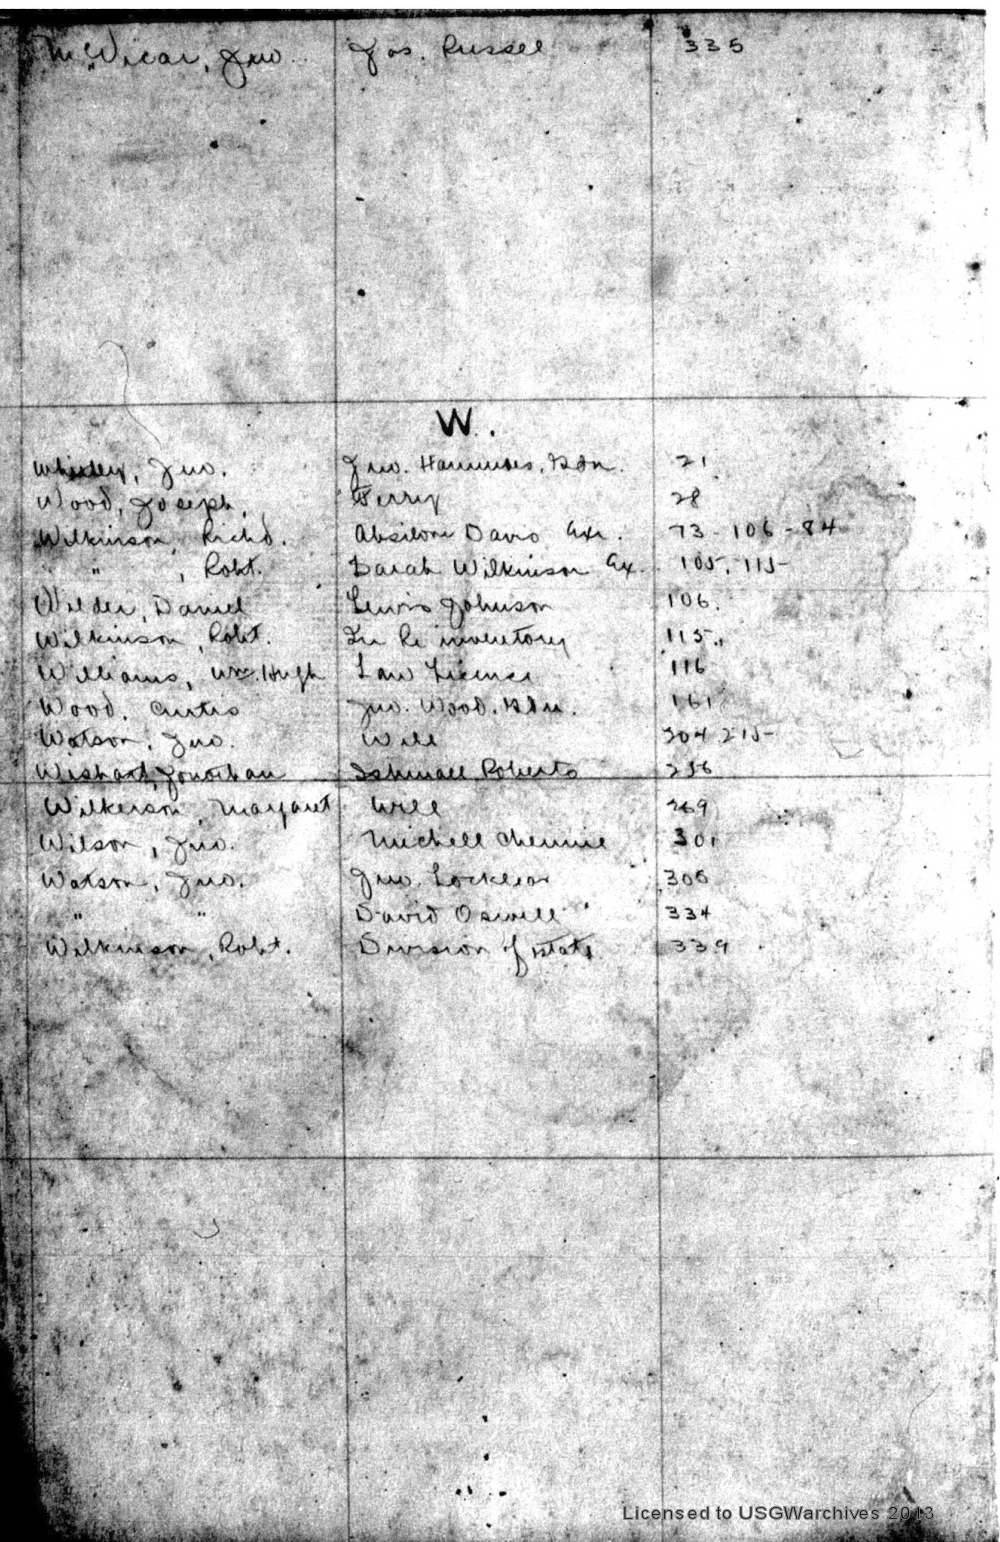 McVicar, Jno. Jos. Russel 335
W.
Whitley, Jno. Jno. Hammons, Gdn. 21
Wood, Joseph, Terry 28
Wilkinson, Richd. Absilom Davis Exr. 73-106-84
" , Robt. Sarah Wilkinson Ex. 105, 115
Wilder, Daniel Lewis Johnson 106.
Wilkinson, Robt. In Re inventory 115.
Williams, Wm. Hugh Law License 116
Wood, Curtis Jno. Wood, Gdn. 161
Watson, Jno. Will 204 215
Wishart, Jonathan Ishmael Roberts 256
Wilkerson, Margaret Will 269
Wilson, Jno. Michell 301
Watson, Jno. Jno. Locklear 305
" " David 334
Wilkinson, Robt. Division of estate 339
Licensed to USGWarchives 2013